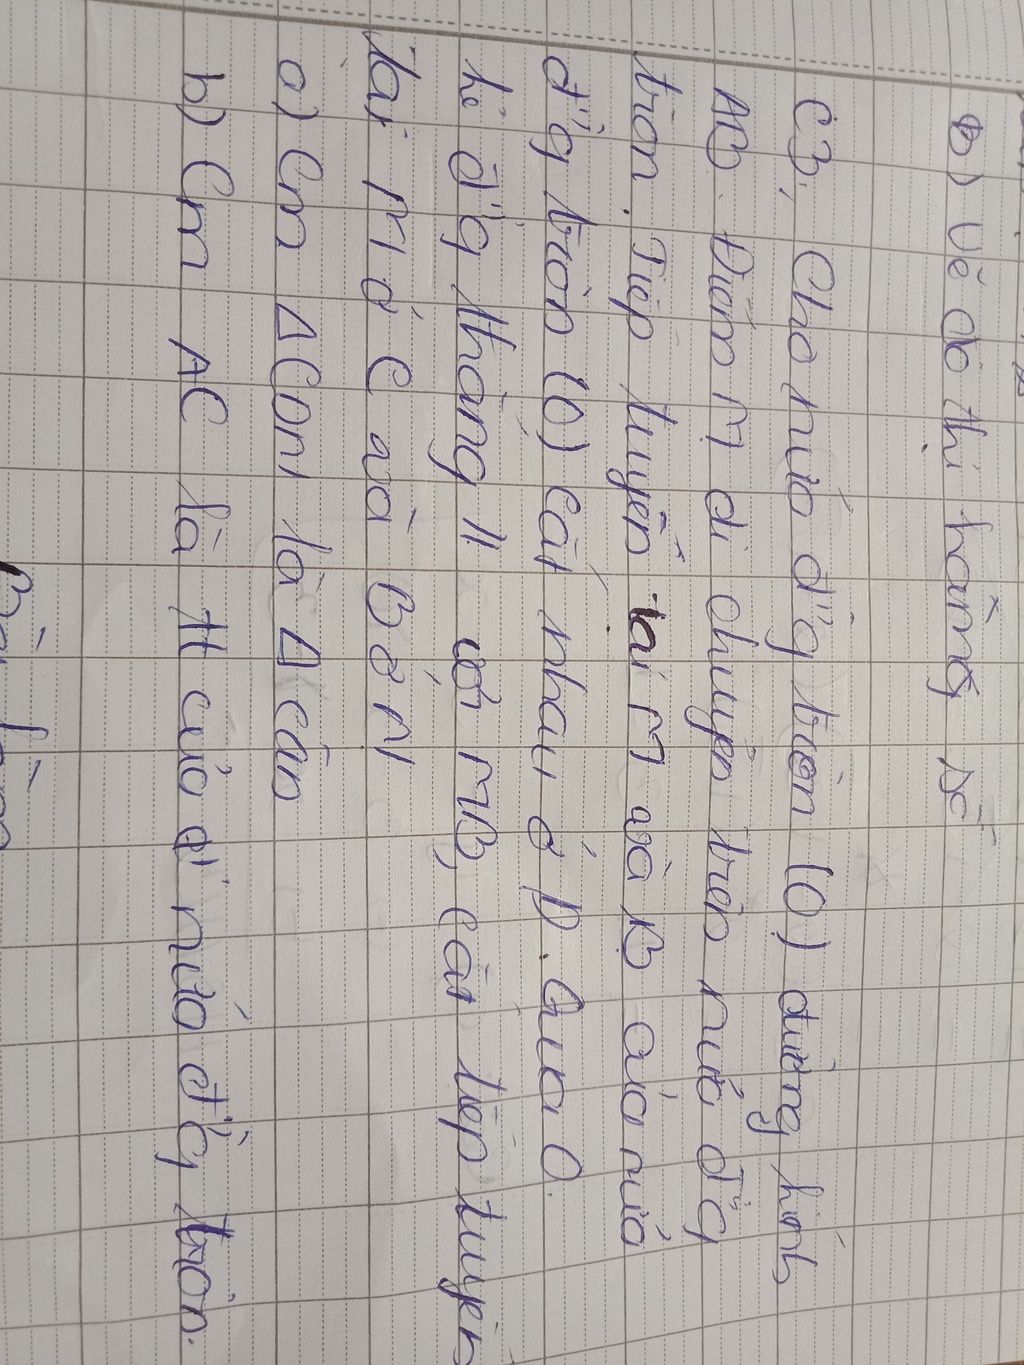 b) Vẽ đồ thị hàm số
C3, Cho nửa đ'g tròn (O) đường kính
AB. Điểm M di chuyển trên nửa đ'g
tròn. Tiếp tuyến tại M và B của nửa
đ'g tròn (O) cắt nhau ở D. Qua O
kẻ đ'g thẳng // với MB, cắt tiếp tuyến
tại M ở C và B ở N
a) Cm ΔCDN là Δ cân
b) Cm AC là tt của nửa đ'g tròn.